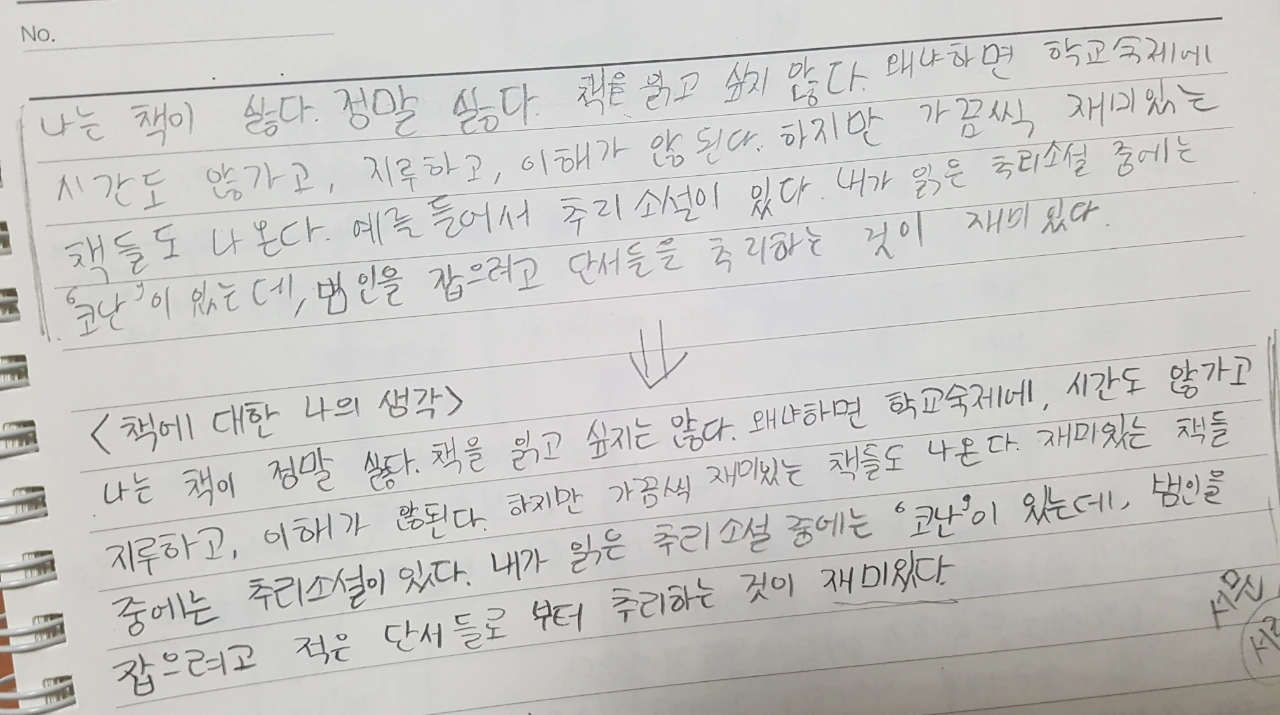 No.
나는 책이 싫다. 정말 싫다. 책을 읽고 싶지 않다. 왜냐하면 학교숙제에
시간도 않가고, 지루하고, 이해가 않된다. 하지만 가끔씩 재미있는
책들도 나온다. 예를 들어서 추리 소설이 있다. 내가 읽은 추리소설 중에는
'코난'이 있는데, 범인을 잡으려고 단서들을 추리하는 것이 재미있다.
<책에 대한 나의 생각>
나는 책이 정말 싫다. 책을 읽고 싶지는 않다. 왜냐하면 학교숙제에, 시간도 않가고
지루하고, 이해가 않된다. 하지만 가끔씩 재미있는 책들도 나온다. 재미있는 책들
중에는 추리소설이 있다. 내가 읽은 추리소설 중에는 '코난'이 있는데, 범인을
잡으려고 적은 단서들로 부터 추리하는 것이 재미있다.